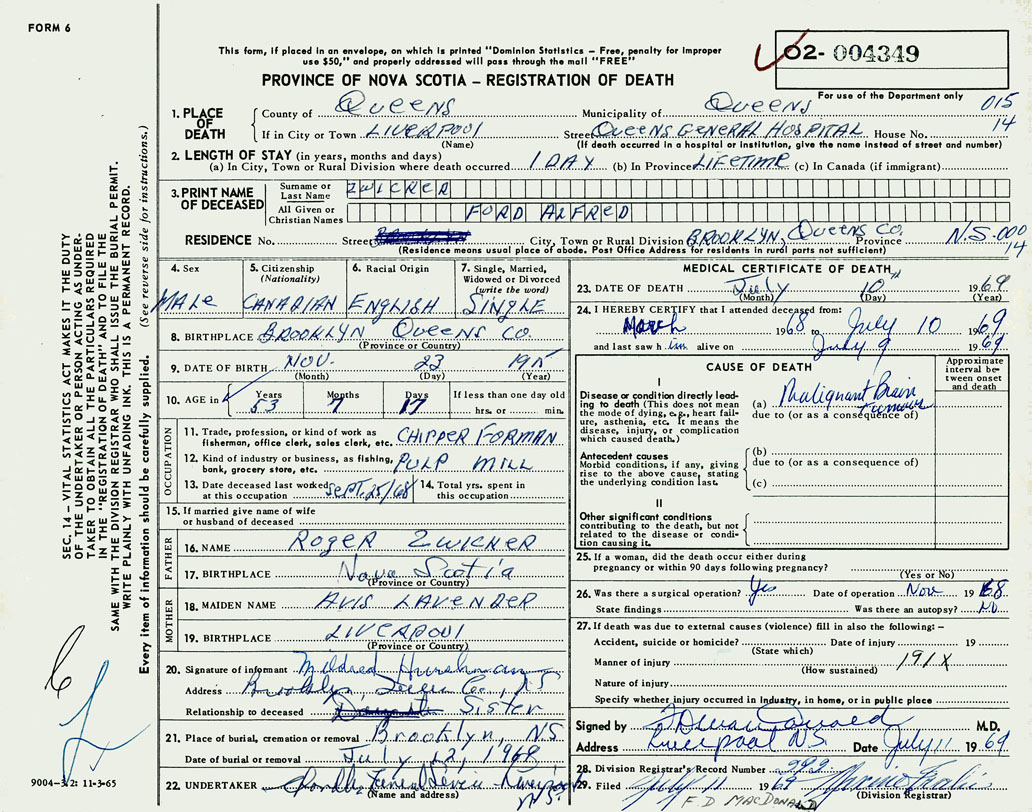 FORM 6
This form, if placed in an envelope, on which is printed "Dominion Statistics – Free, penalty for improper
use $50," and properly addressed will pass through the mail "FREE"
O2- 004349
PROVINCE OF NOVA SCOTIA – REGISTRATION OF DEATH
For use of the Department only
015
14
1. PLACE OF DEATH
County of QUEENS Municipality of QUEENS
If in City or Town LIVERPOOL Street QUEENS GENERAL HOSPITAL House No.
(Name) (If death occurred in a hospital or institution, give the name instead of street and number)
2. LENGTH OF STAY (in years, months and days)
(a) In City, Town or Rural Division where death occurred 1 DAY (b) In Province LIFETIME (c) In Canada (if immigrant)
3. PRINT NAME OF DECEASED
Surname or Last Name ZWICKER
All Given or Christian Names FORD ALFRED
RESIDENCE No. Street City, Town or Rural Division BROOKLYN, QUEENS CO. Province N.S. 000
14
(Residence means usual place of abode. Post Office Address for residents in rural parts not sufficient)
4. Sex MALE
5. Citizenship (Nationality) CANADIAN
6. Racial Origin ENGLISH
7. Single, Married, Widowed or Divorced (write the word) SINGLE
8. BIRTHPLACE BROOKLYN QUEENS CO.
(Province or Country)
9. DATE OF BIRTH NOV. 23 1915
(Month) (Day) (Year)
10. AGE in Years Months Days If less than one day old
53 7 17 hrs. or min.
OCCUPATION
11. Trade, profession, or kind of work as fisherman, office clerk, sales clerk, etc. CHIPPER FORMAN
12. Kind of industry or business, as fishing, bank, grocery store, etc. PULP MILL
13. Date deceased last worked at this occupation SEPT. 25/68 14. Total yrs. spent in this occupation
15. If married give name of wife or husband of deceased
FATHER
16. NAME ROGER ZWICKER
17. BIRTHPLACE Nova Scotia
(Province or Country)
MOTHER
18. MAIDEN NAME AVIS LAVENDER
19. BIRTHPLACE LIVERPOOL
(Province or Country)
20. Signature of informant Mildred
Address Brooklyn, Queens Co., NS
Relationship to deceased Sister
21. Place of burial, cremation or removal Brooklyn, NS.
Date of burial or removal July 12, 1969
22. UNDERTAKER Funeral Service Liverpool N.S.
(Name and address)
MEDICAL CERTIFICATE OF DEATH
23. DATE OF DEATH July 10th 1969
(Month) (Day) (Year)
24. I HEREBY CERTIFY that I attended deceased from:
March 1968 to July 10 1969
and last saw him alive on July 9 1969
CAUSE OF DEATH
Approximate interval between onset and death
I
Disease or condition directly leading to death (This does not mean the mode of dying, e.g., heart failure, asthenia, etc. It means the disease, injury, or complication which caused death.)
(a) Malignant Brain Tumour
due to (or as a consequence of)
Antecedent causes
Morbid conditions, if any, giving rise to the above cause, stating the underlying condition last.
(b)
due to (or as a consequence of)
(c)
II
Other significant conditions
contributing to the death, but not related to the disease or condition causing it.
25. If a woman, did the death occur either during pregnancy or within 90 days following pregnancy?
(Yes or No)
26. Was there a surgical operation? Yes Date of operation Nov 1968
State findings Was there an autopsy? No
27. If death was due to external causes (violence) fill in also the following: –
Accident, suicide or homicide? Date of injury 19
(State which)
Manner of injury 191X
(How sustained)
Nature of injury
Specify whether injury occurred in industry, in home, or in public place
Signed by M.D.
Address Liverpool NS Date July 11 1969
28. Division Registrar's Record Number
29. Filed July 11 19
(Division Registrar)
F D MACDONALD
SEC. 14 – VITAL STATISTICS ACT MAKES IT THE DUTY
OF THE UNDERTAKER OR PERSON ACTING AS UNDER-
TAKER TO OBTAIN ALL THE PARTICULARS REQUIRED
IN THE "REGISTRATION OF DEATH" AND TO FILE THE
SAME WITH THE DIVISION REGISTRAR WHO SHALL ISSUE THE BURIAL PERMIT.
WRITE PLAINLY WITH UNFADING INK. THIS IS A PERMANENT RECORD.
Every item of information should be carefully supplied. (See reverse side for instructions.)
9004-3/2: 11-3-65